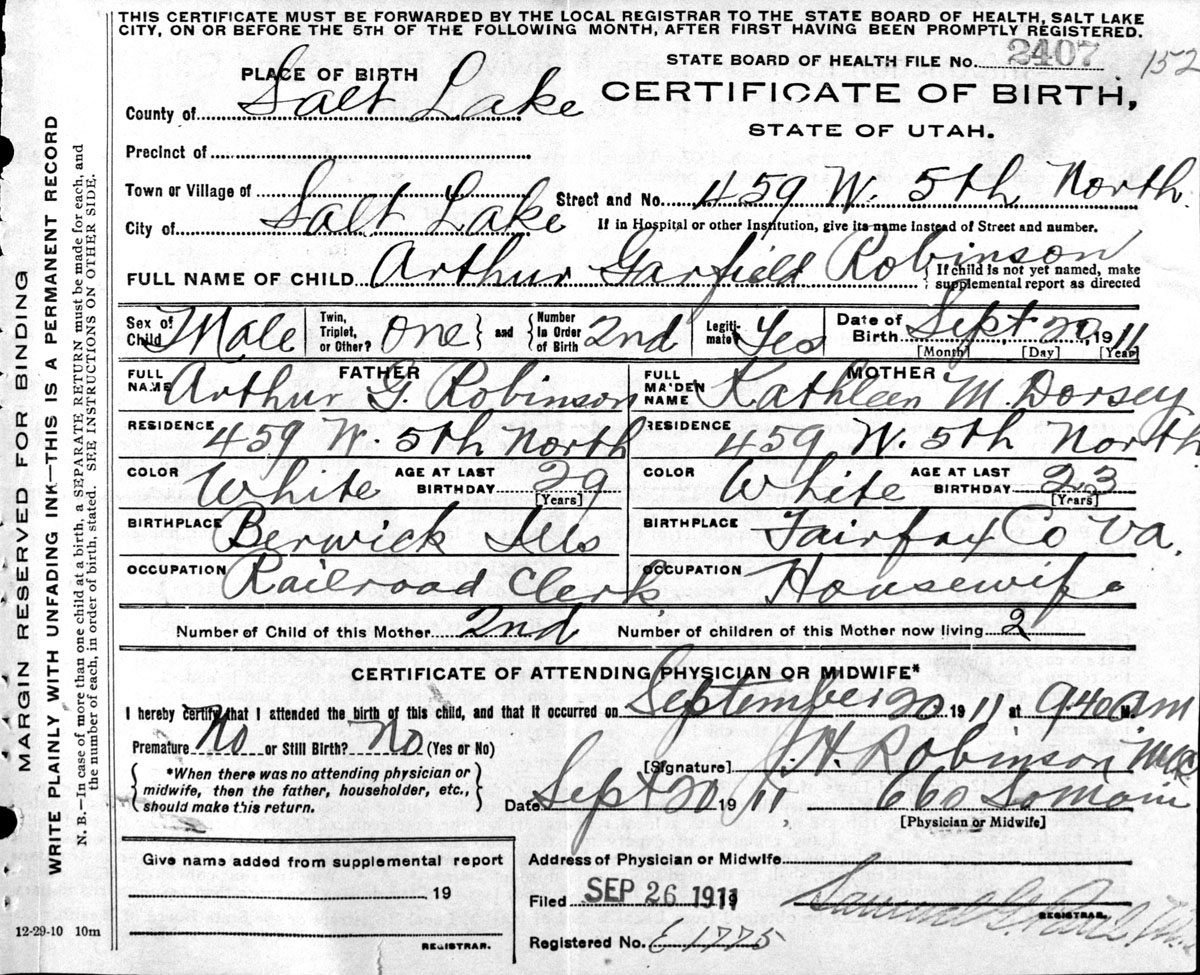 THIS CERTIFICATE MUST BE FORWARDED BY THE LOCAL REGISTRAR TO THE STATE BOARD OF HEALTH, SALT LAKE
CITY, ON OR BEFORE THE 5TH OF THE FOLLOWING MONTH, AFTER FIRST HAVING BEEN PROMPTLY REGISTERED.
STATE BOARD OF HEALTH FILE No. 2407 152
PLACE OF BIRTH
CERTIFICATE OF BIRTH,
County of Salt Lake
STATE OF UTAH.
Precinct of
Town or Village of
Street and No. 459 W. 5th North
City of Salt Lake
If in Hospital or other Institution, give its name instead of Street and number.
FULL NAME OF CHILD Arthur Garfield Robinson
{ If child is not yet named, make
supplemental report as directed
Sex of Child Male
Twin, Triplet, or Other? One } and { Number In Order of Birth 2nd
Legitimate? Yes
Date of Birth Sept. 20, 1911
[Month] [Day] [Year]
FATHER
FULL NAME Arthur G. Robinson
RESIDENCE 459 W. 5th North
COLOR White AGE AT LAST BIRTHDAY 29
[Years]
BIRTHPLACE Berwick Ills
OCCUPATION Railroad Clerk
MOTHER
FULL MAIDEN NAME Kathleen M. Dorsey
RESIDENCE 459 W. 5th North
COLOR White AGE AT LAST BIRTHDAY 23
[Years]
BIRTHPLACE Fairfax Co Va.
OCCUPATION Housewife
Number of Child of this Mother 2nd Number of children of this Mother now living 2
CERTIFICATE OF ATTENDING PHYSICIAN OR MIDWIFE*
I hereby certify that I attended the birth of this child, and that it occurred on September 20 1911 at 9:40 am M.
Premature No or Still Birth? No (Yes or No)
{ *When there was no attending physician or
midwife, then the father, householder, etc.,
should make this return. }
[Signature] J. H. Robinson
Date Sept 20 1911, 660
[Physician or Midwife]
Give name added from supplemental report
19
REGISTRAR.
12-29-10 10m
Address of Physician or Midwife
Filed SEP 26 1911 Samuel G. Paul
REGISTRAR.
Registered No. E 1775
MARGIN RESERVED FOR BINDING
WRITE PLAINLY WITH UNFADING INK—THIS IS A PERMANENT RECORD
N. B.—In case of more than one child at a birth, a SEPARATE RETURN must be made for each, and
the number of each, in order of birth, stated. SEE INSTRUCTIONS ON OTHER SIDE.